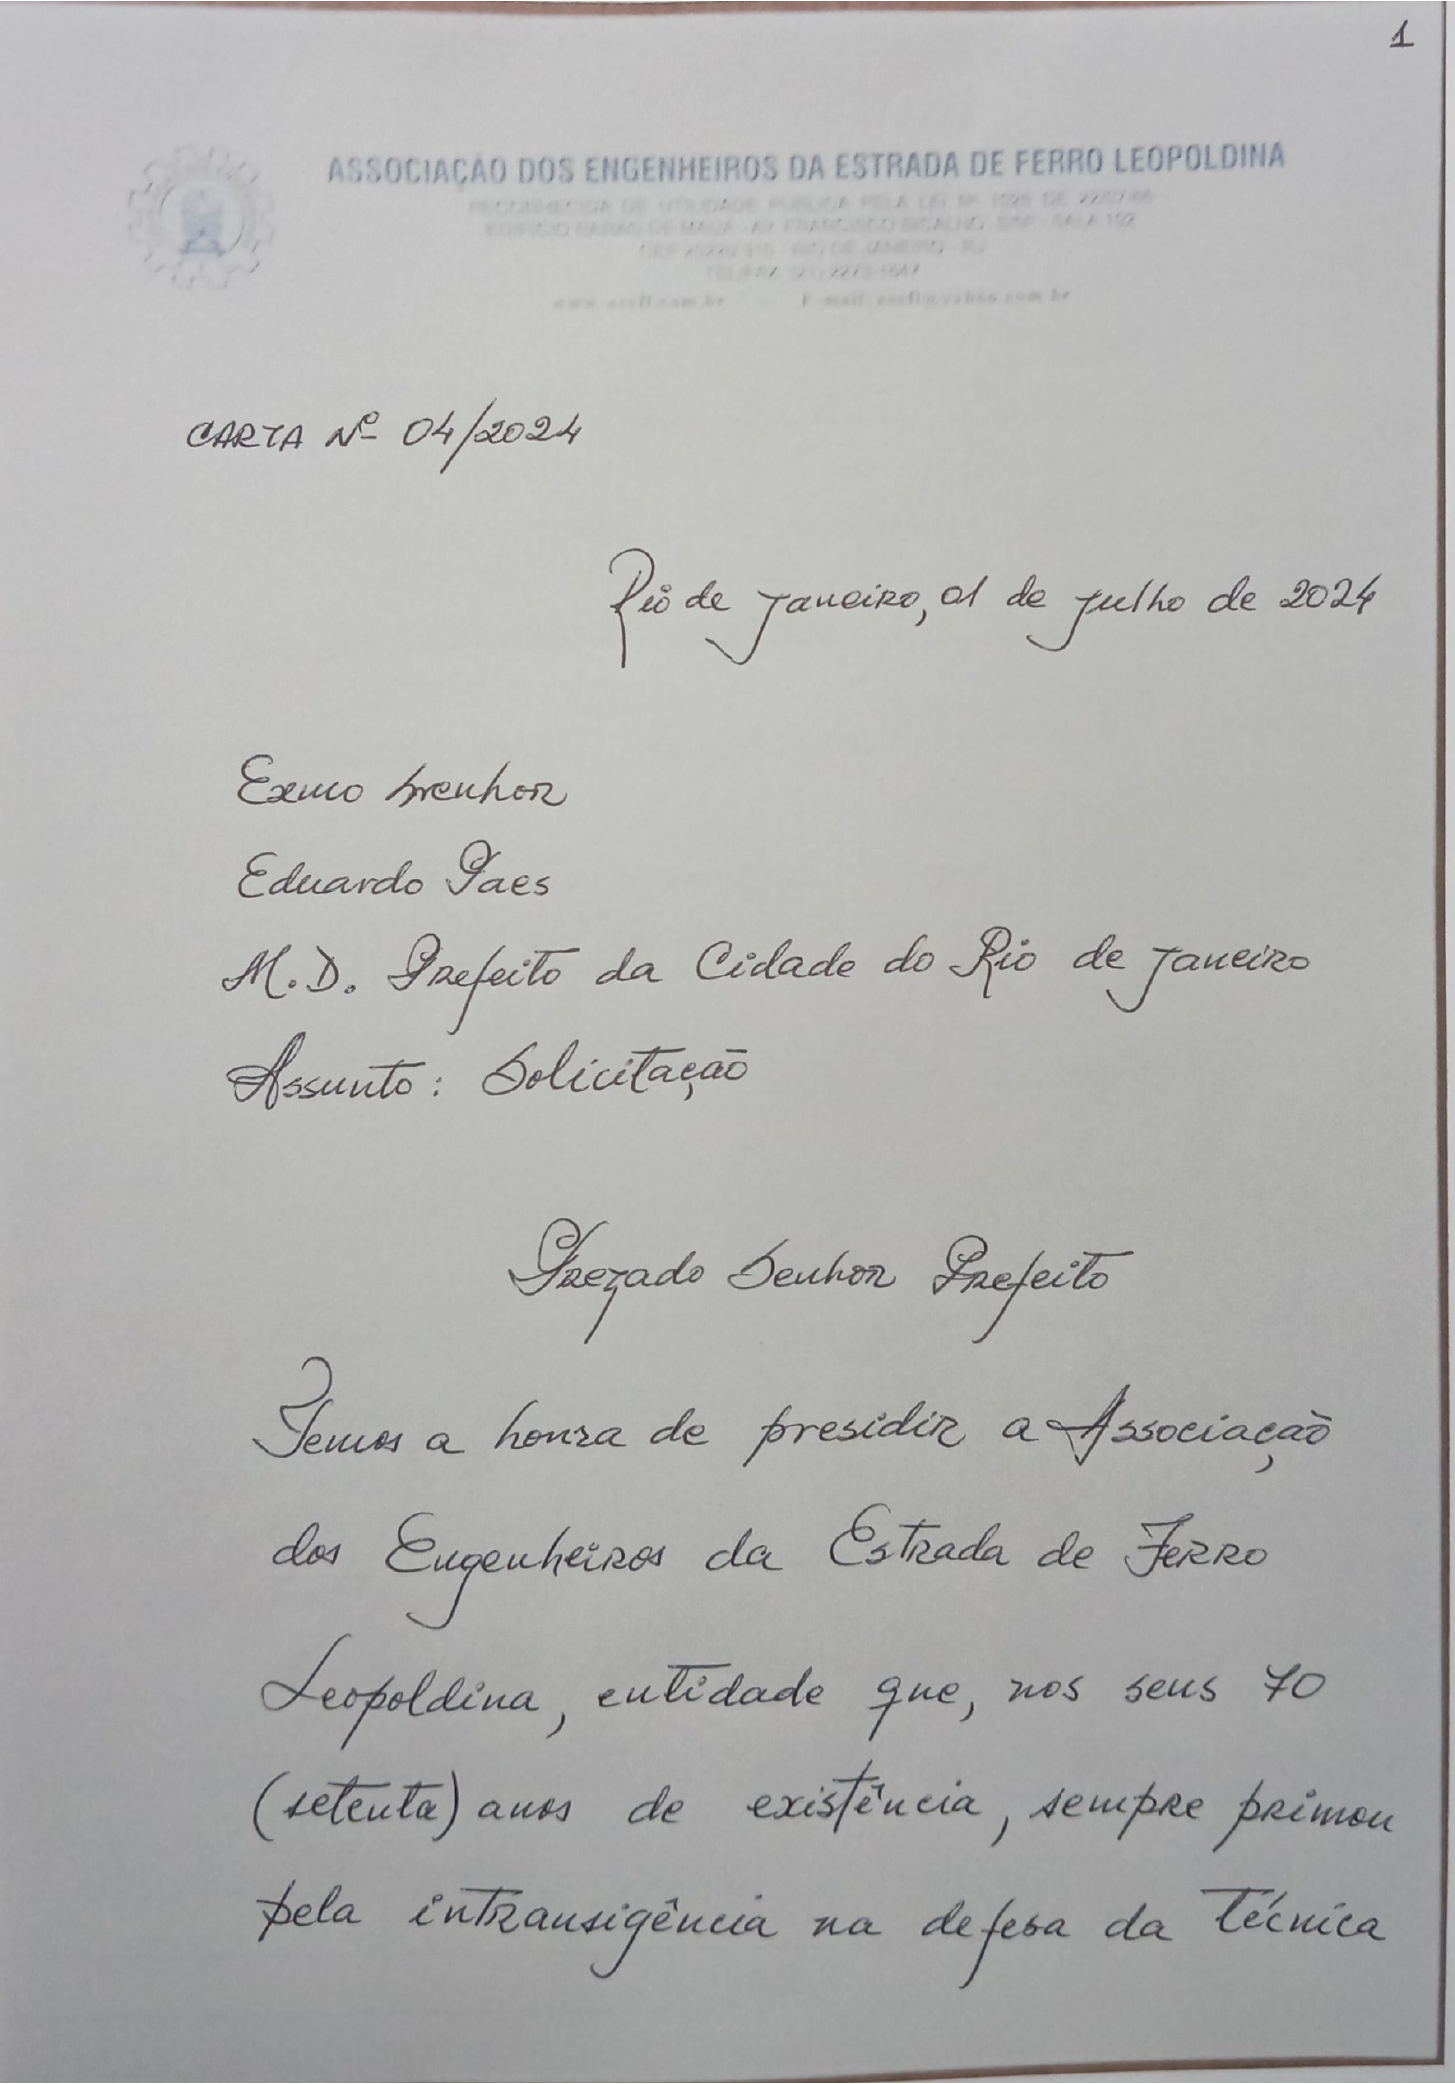 1
ASSOCIAÇÃO DOS ENGENHEIROS DA ESTRADA DE FERRO LEOPOLDINA
RECONHECIDA DE UTILIDADE PÚBLICA PELA LEI Nº 1026 DE 22/07/66
EDIFÍCIO BARÃO DE MAUÁ - AV. FRANCISCO BICALHO, S/Nº - SALA 102
RIO DE JANEIRO - RJ
TEL/FAX: (21) 2273-1647
CARTA Nº 04/2024
Rio de Janeiro, 01 de Julho de 2024
Exmo Senhor
Eduardo Paes
M.D. Prefeito da Cidade do Rio de Janeiro
Assunto: Solicitação
Prezado Senhor Prefeito
Temos a honra de presidir a Associação
dos Engenheiros da Estrada de Ferro
Leopoldina, entidade que, nos seus 70
(setenta) anos de existência, sempre primou
pela intransigência na defesa da técnica